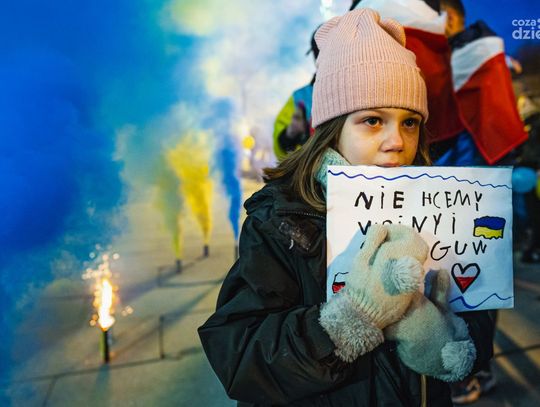 coza
dzie
NIE HCEMY
WOJNY I
GUW